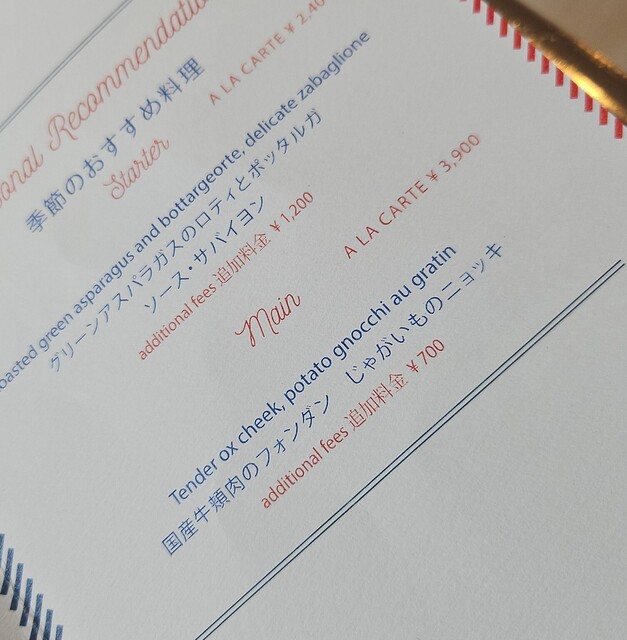 Recommendation
季節のおすすめ料理
Starter
A LA CARTE ¥ 2,40
oasted green asparagus and bottargeorte, delicate zabaglione
グリーンアスパラガスのロティとポッタルガ
ソース・サバイヨン
additional fees 追加料金 ¥ 1,200
Main
A LA CARTE ¥ 3,900
Tender ox cheek, potato gnocchi au gratin
国産牛頬肉のフォンダン じゃがいものニョッキ
additional fees 追加料金 ¥ 700